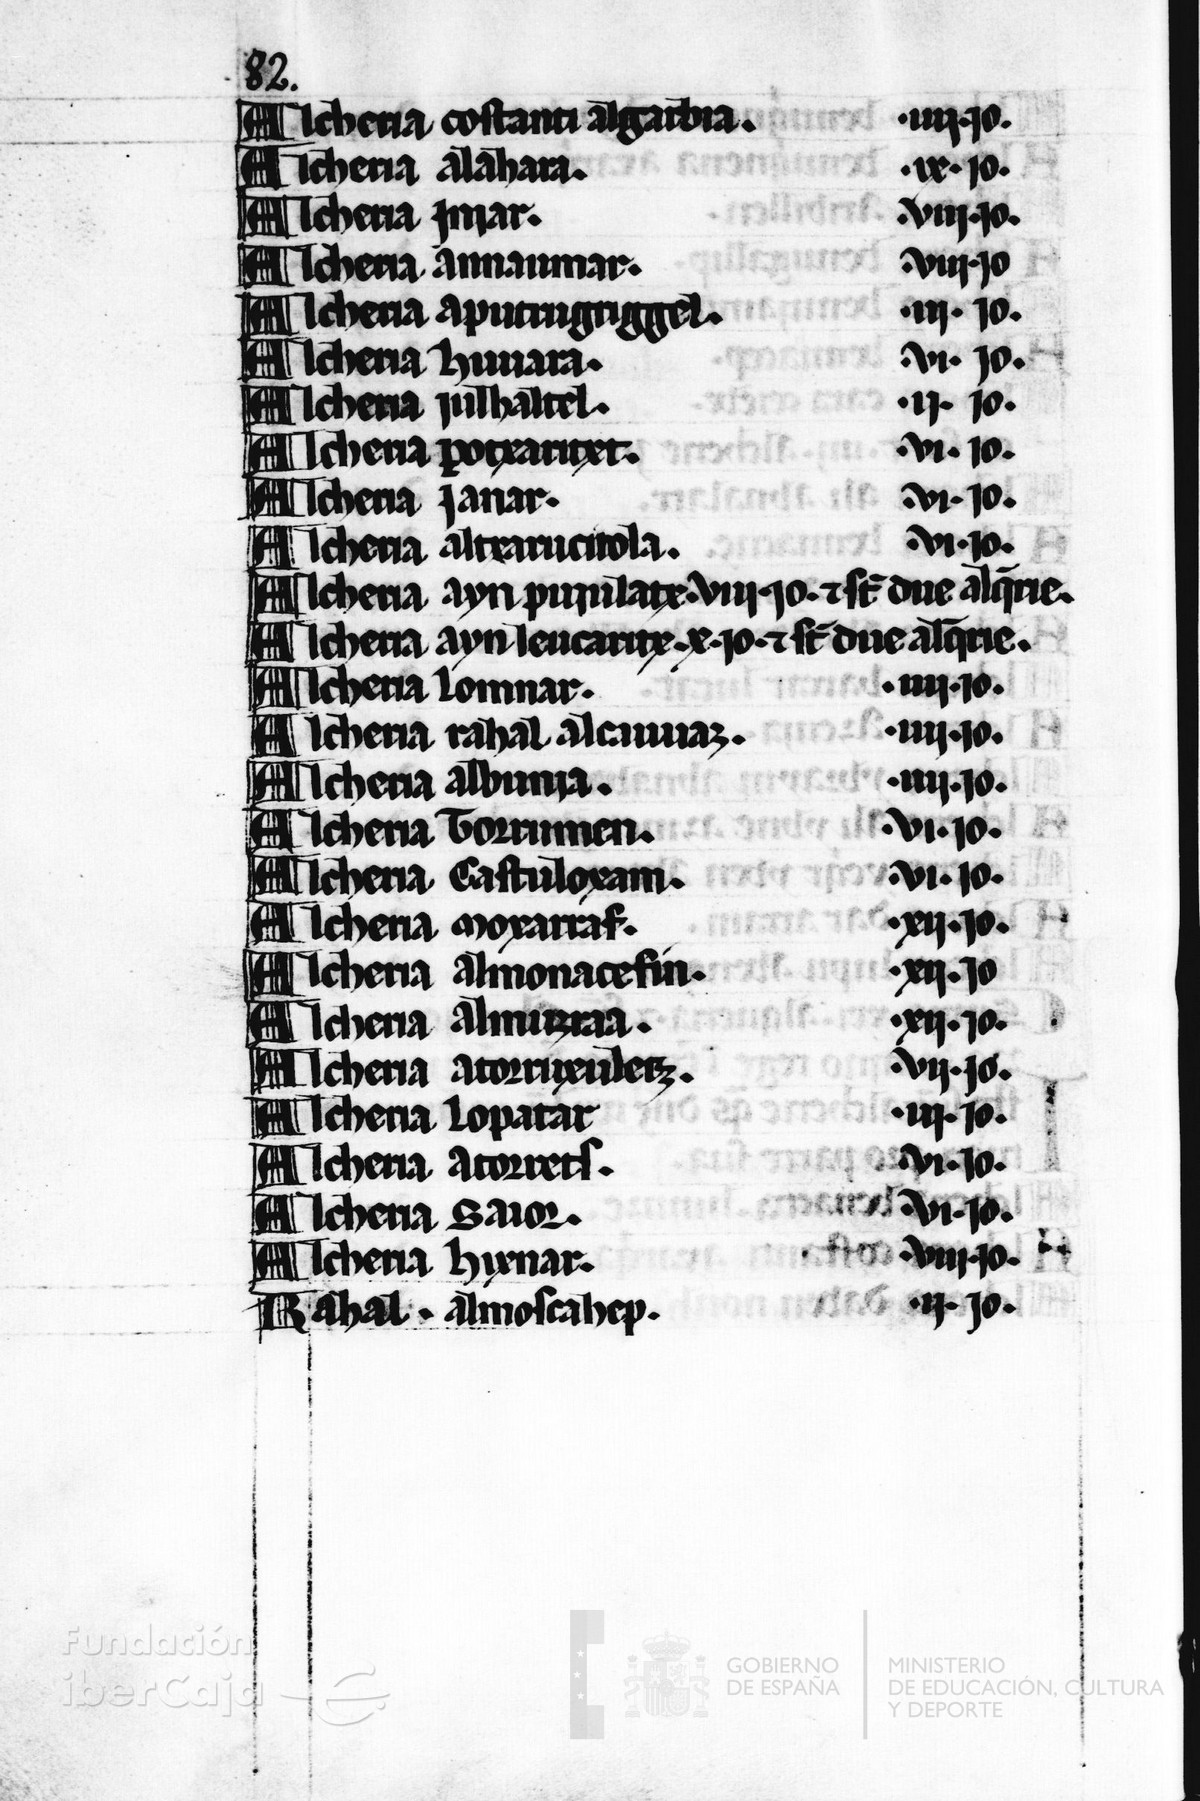 82.
Alcheria costanti algarbia. .iiij.jo.
Alcheria alahara. .ix.jo.
Alcheria .viij.jo.
Alcheria annaumar. .viij.jo
Alcheria .iij.jo.
Alcheria huuara. .vi.jo.
Alcheria julhaltel. .ij.jo.
Alcheria .vi.jo.
Alcheria Janar. .vi.jo.
Alcheria .vi.jo.
Alcheria ayn .viij.jo. ⁊ st̄ due alq̄rie.
Alcheria ayn leucaritx .x.jo. ⁊ st̄ due alq̄rie.
Alcheria Lomnar. .iiij.jo.
Alcheria rahal .iiij.jo.
Alcheria albunia. .iiij.jo.
Alcheria Torrumen. .vi.jo.
Alcheria Castuloxam. .vi.jo.
Alcheria moxarraf. .xij.jo.
Alcheria almonacefin. .xij.jo
Alcheria almuzraa. .xij.jo.
Alcheria atorrixuletz. .vij.jo.
Alcheria Lopatar .iij.jo.
Alcheria atorrets. .vi.jo.
Alcheria Saior. .vi.jo.
Alcheria hixnar. .viij.jo.
Rahal. almoscahep. .ij.jo.
Fundación
iberCaja
GOBIERNO
DE ESPAÑA
MINISTERIO
DE EDUCACIÓN, CULTURA
Y DEPORTE